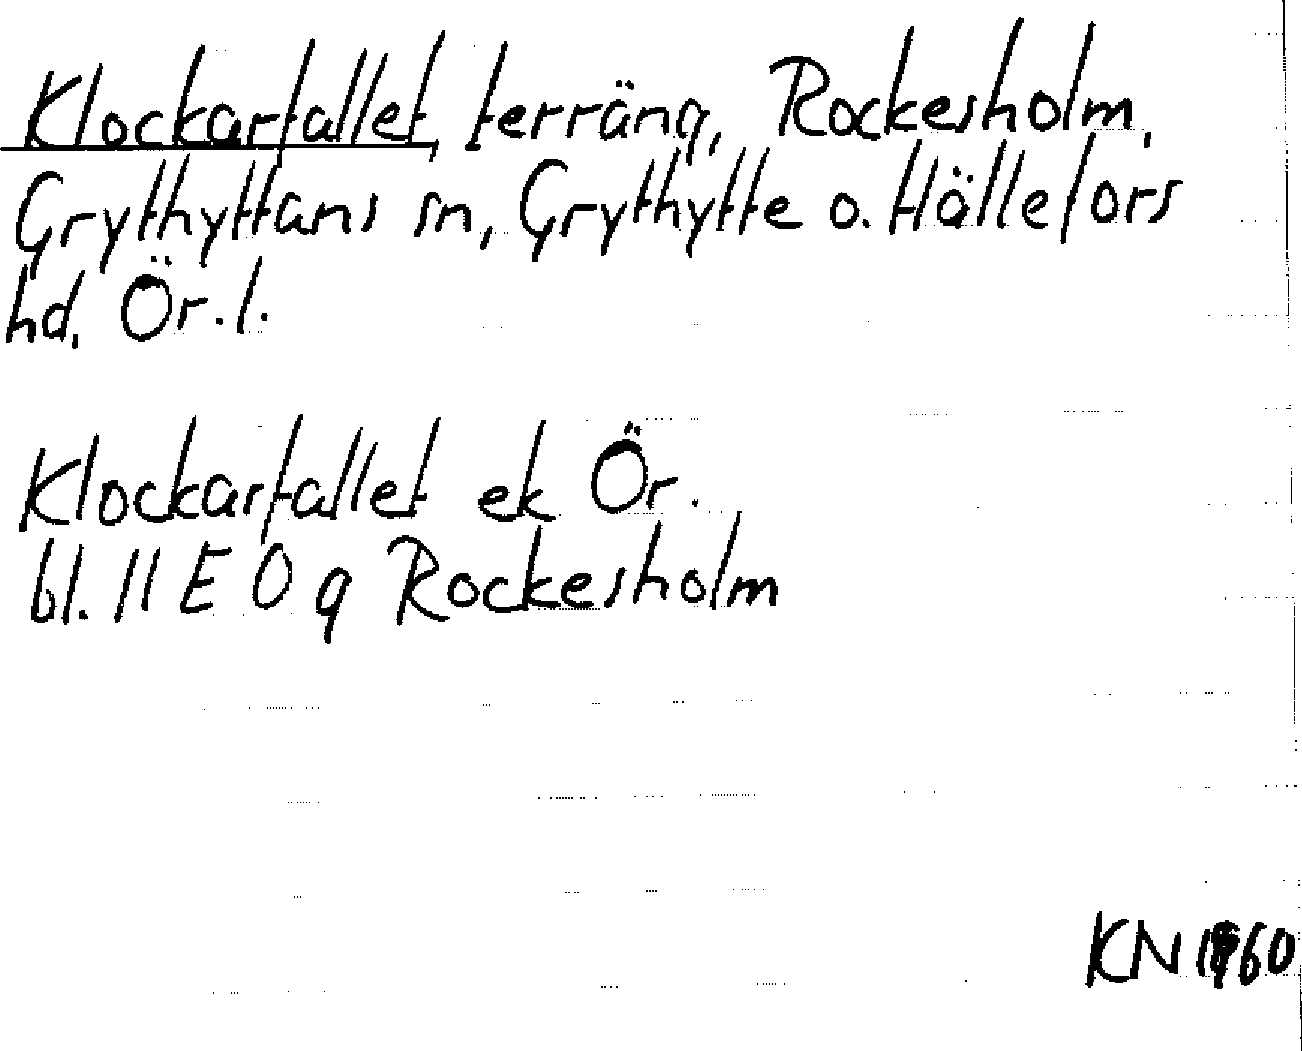 Klockarfallet, terräng, Rockesholm,
Grythyttans sn, Grythytte o. Hällefors
hd, Ör. l.
Klockarfallet ek Ör.
bl. 11 E 0 g Rockesholm
KN 1960